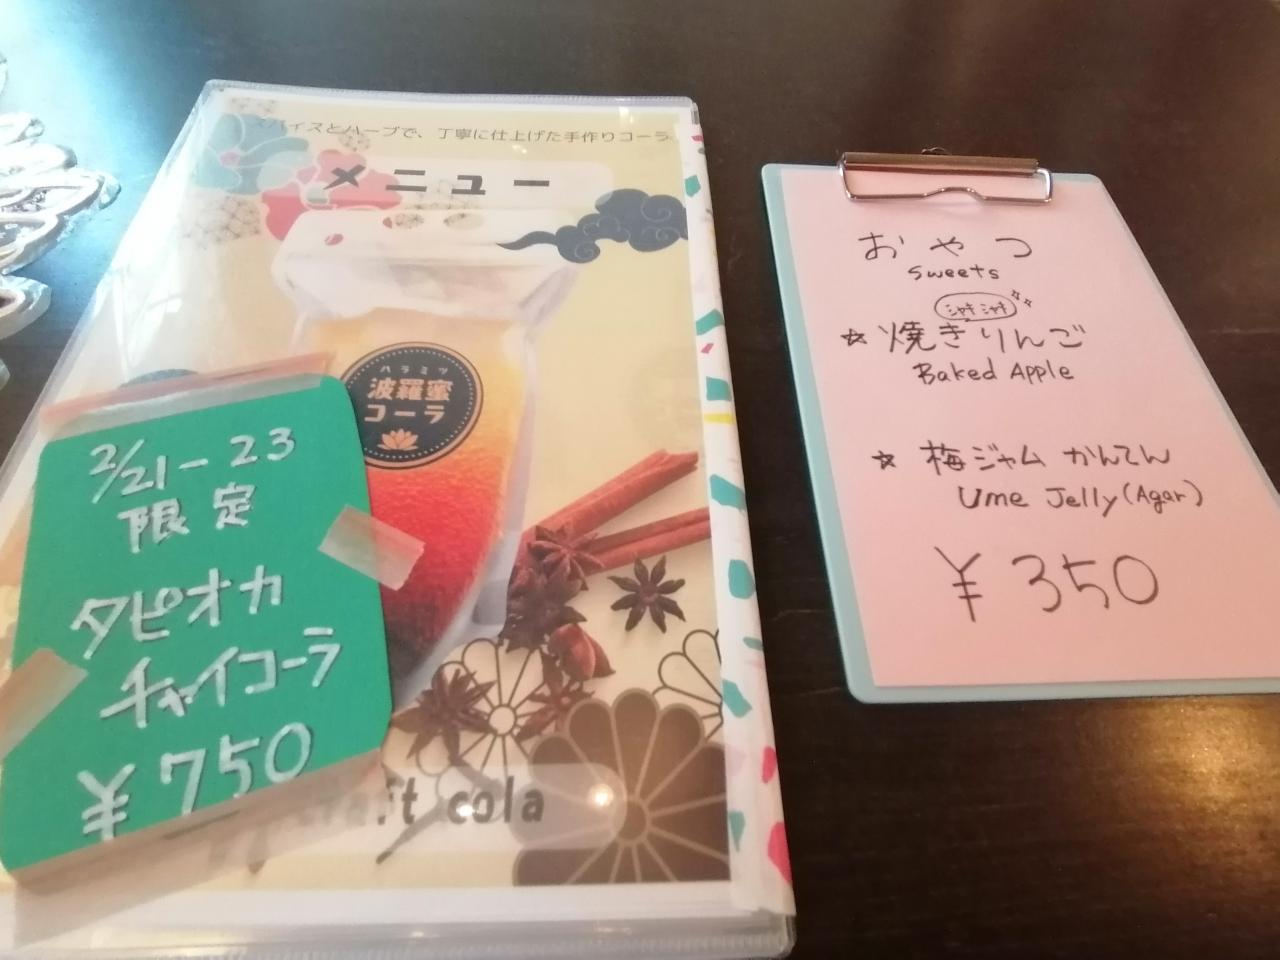 スパイスとハーブで、丁寧に仕上げた手作りコーラ
メニュー
ハラミツ
波羅蜜
コーラ
craft cola
2/21-23
限定
タピオカ
チャイコーラ
¥750
おやつ
sweets
シャキシャキ
☆焼きりんご
Baked Apple
☆梅ジャムかんてん
Ume Jelly(Agar)
¥350